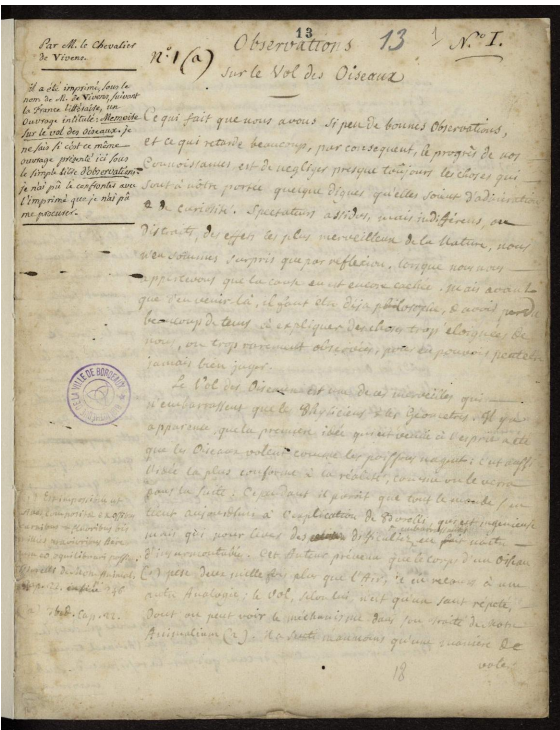 13
Par M. le Chevalier
de Vivens.
N.º 1 (a)
Observations
13
1
N.º I.
sur le Vol des Oiseaux
il a été imprimé, sous le
nom de M. de Vivens, suivant
la France littéraire, un
Ouvrage intitulé: Memoire
sur le vol des Oiseaux. je
ne sais si c'est ce même
ouvrage présenté ici sous
le simple titre d'observations.
je n'ai pû le confronter avec
l'imprimé que je n'ai pû
me procurer.
Ce qui fait que nous avons si peu de bonnes Observations,
et ce qui retarde beaucoup, par consequent, le progrès de nos
Connoissances est de negliger presque toujours les choses qui
sont à nôtre portée quelque dignes qu'elles soient d'admiration
de curiosité. Spectateurs assidus, mais indifférens, ou
distraits, des effets les plus merveilleux de la Nature, nous
n'en sommes surpris que par reflexion, lorsque nous nous
appercevons que la cause en est encore cachée. Mais avant
que d'en venir là, il faut être deja philosophe, & avoir perdu
beaucoup de tems à expliquer des choses trop eloignées de
nous, ou trop rarement observées, pour en pouvoir peut etre
jamais bien juger.
Le Vol des Oiseaux est une de ces merveilles qui
n'embarrassent que les Physiciens & les Geometres. Il y a
apparence que la premiere idée qui est venue à l'esprit a été
que les Oiseaux volent comme les poissons nagent: c'est aussi
l'idée la plus conforme à la réalité, comme on le verra
pour la suite: Cependant il paroit que tout le monde s'en
tient aujourd'hui à l'explication de Borelli, qui est ingenieuse
mais qui pour lever des difficultés en fait naitre
d'insurmontables. Cet Auteur prévenu que le corps d'un Oiseau
pese deux mille fois plus que l'Air, je en
autre Analogie: le Vol, selon lui, n'est qu'un saut répeté,
dont on peut voir le méchanisme dans son traité de motu
Animalium (2). il a senti neanmoins qu'une maniere de
voler
18
(2) Ibid. Cap. 22.
DE LA VILLE DE BORDEAUX